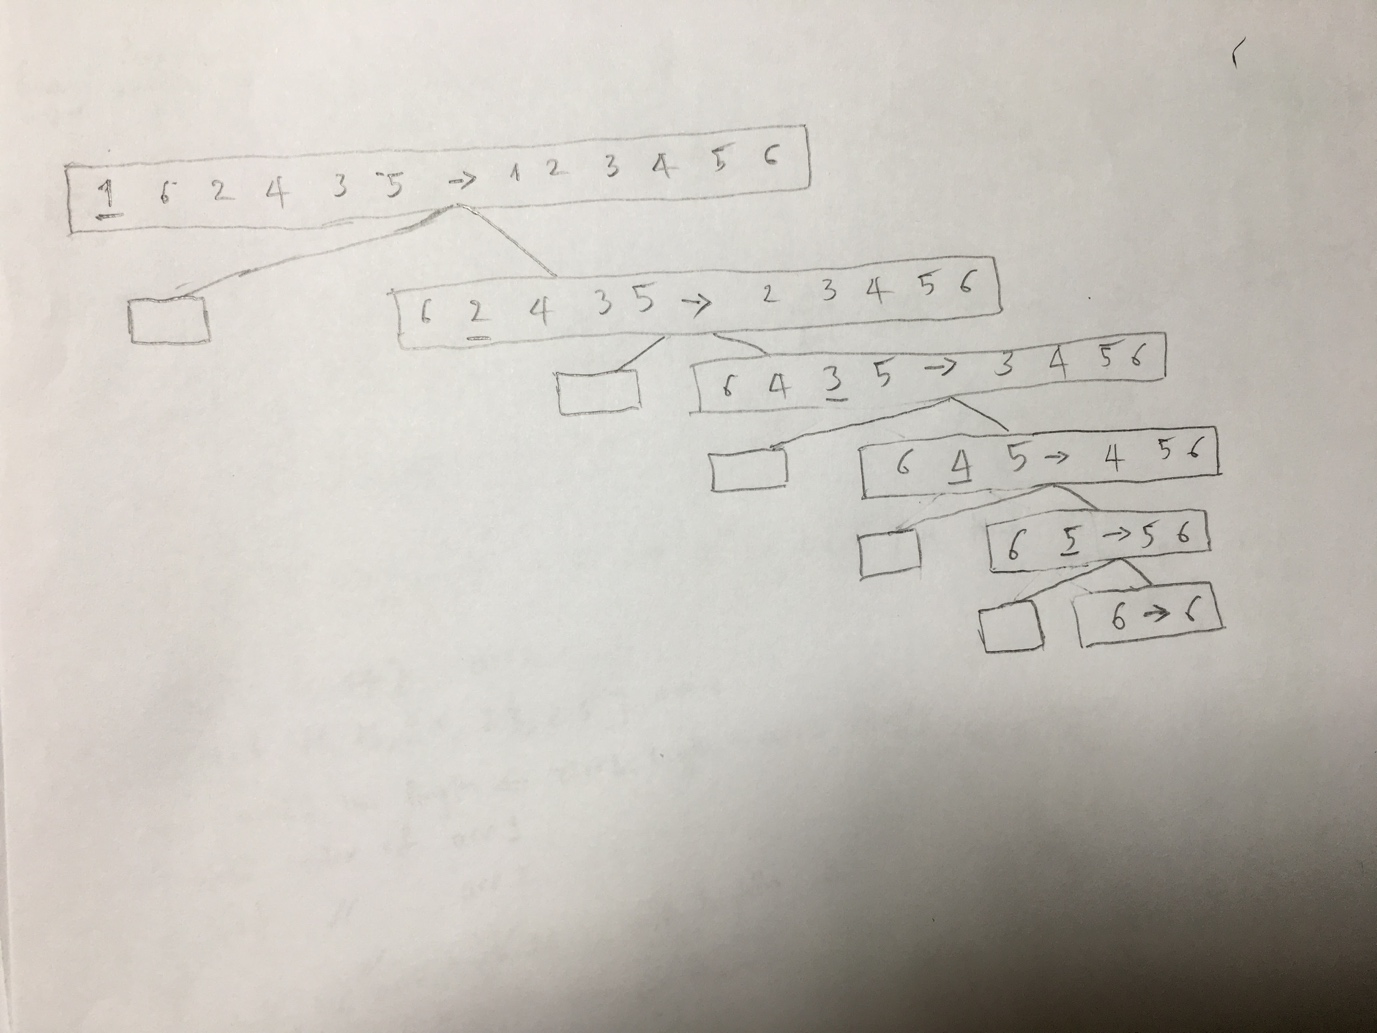 1 6 2 4 3 5 → 1 2 3 4 5 6
6 2 4 3 5 → 2 3 4 5 6
6 4 3 5 → 3 4 5 6
6 4 5 → 4 5 6
6 5 → 5 6
6 → 6